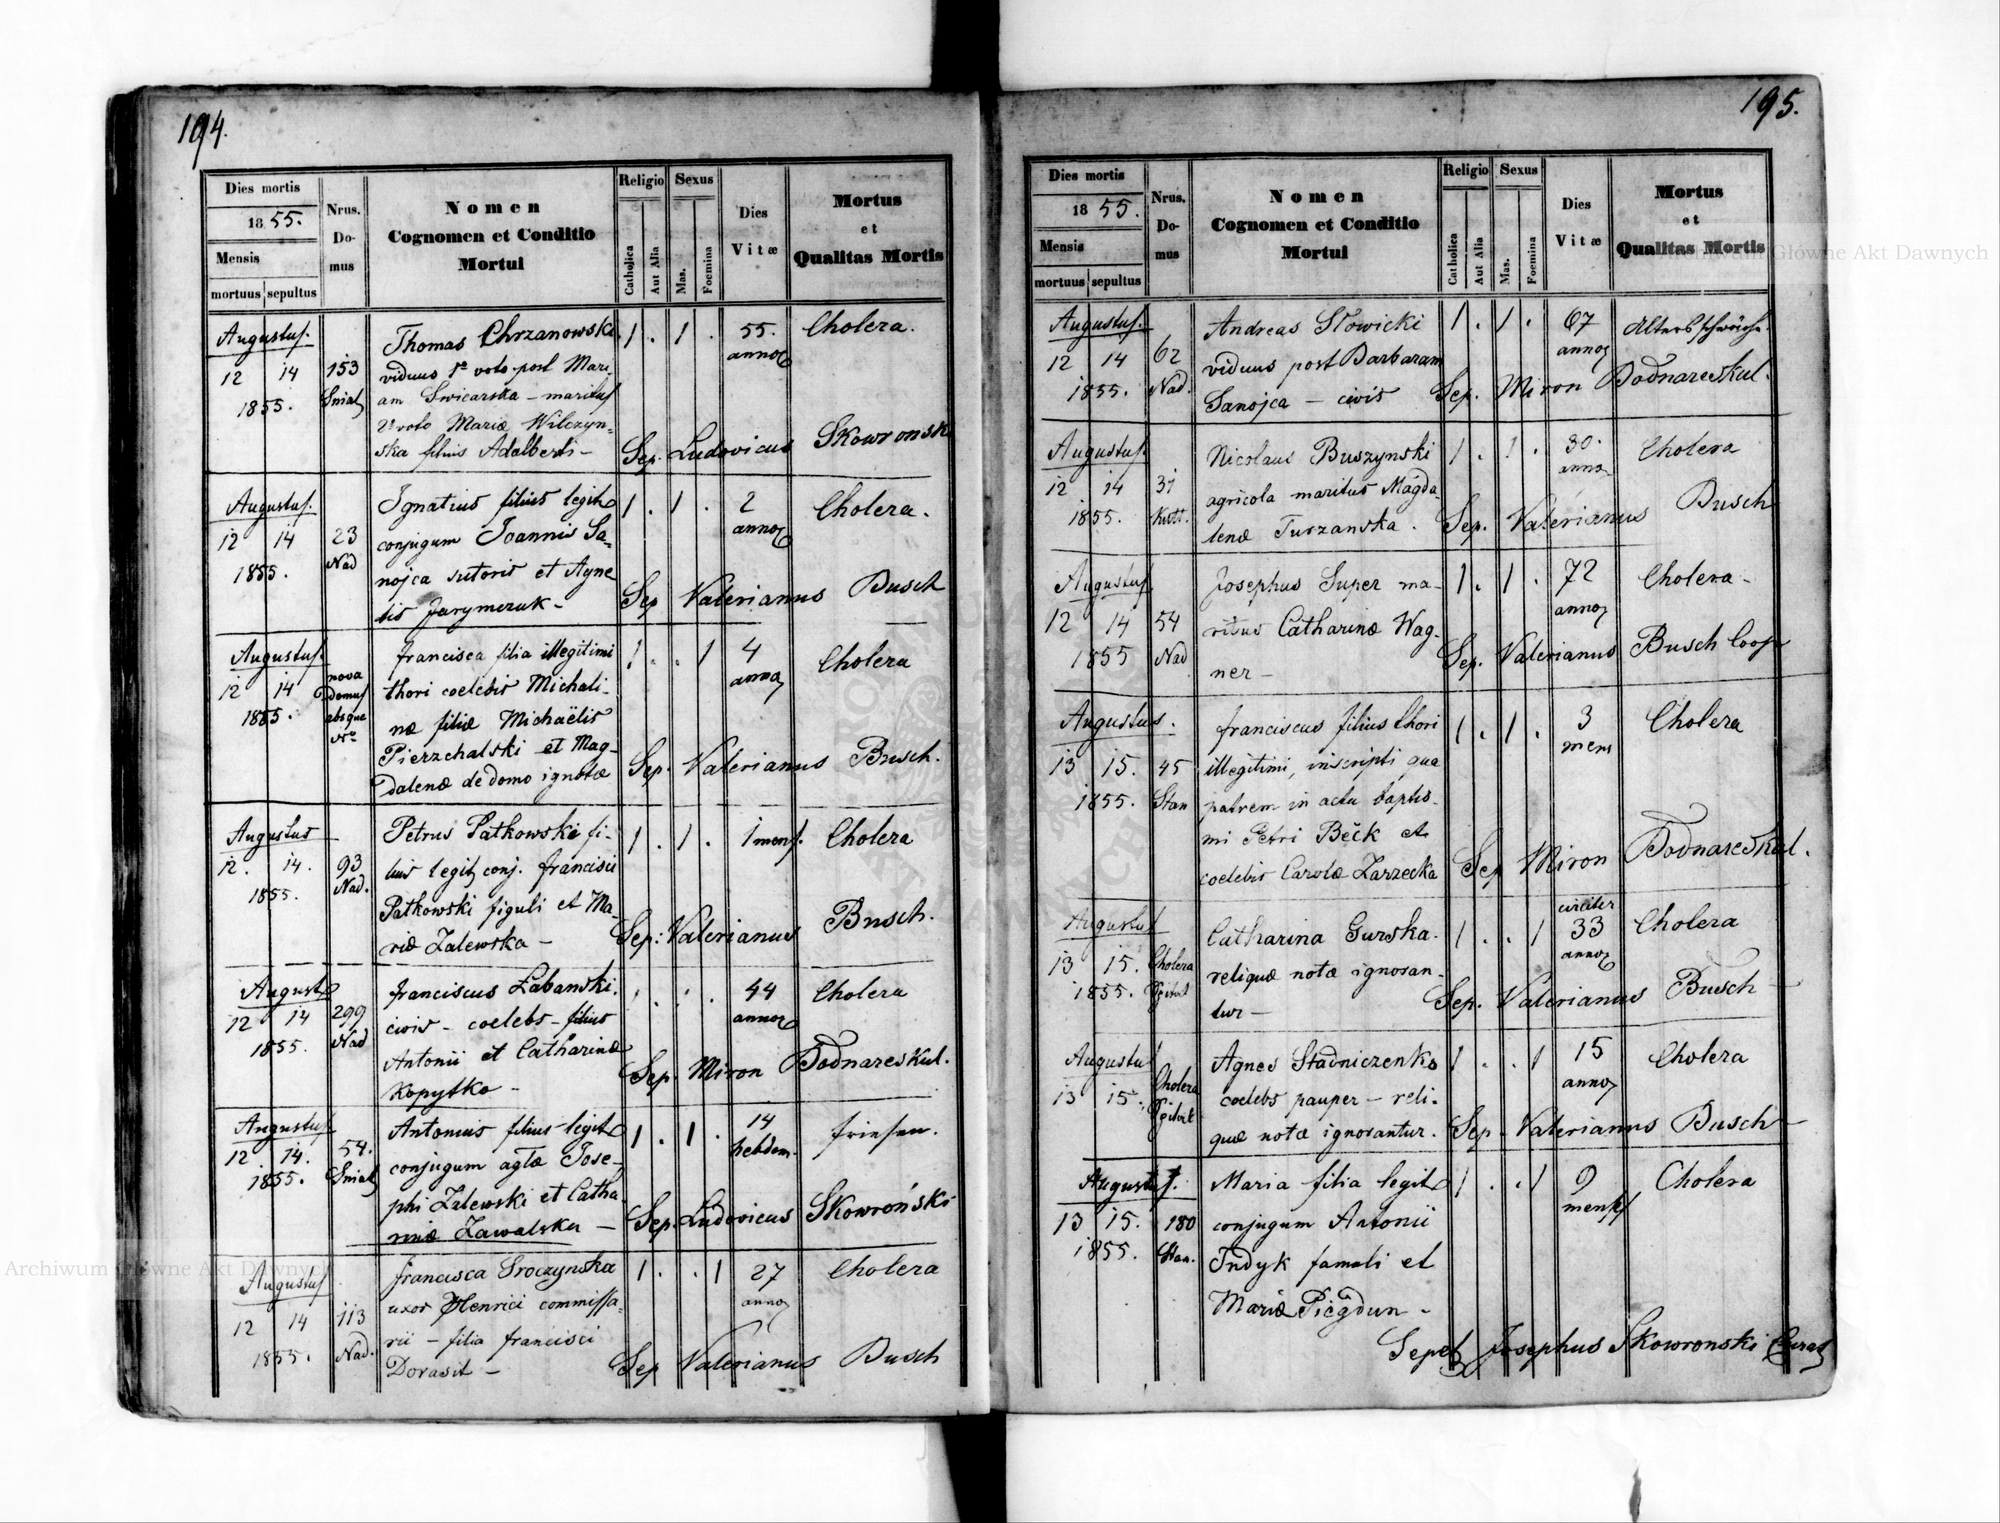 194.
Dies mortis
1855.
Mensis
mortuus sepultus
Nrus. Domus
Nomen
Cognomen et Conditio
Mortui
Religio
Catholica
Aut Alia
Sexus
Mas.
Foemina
Dies
Vitæ
Mortus
et
Qualitas Mortis
Augustus.
12 14
1855.
153
Sniat
Thomas Chrzanowski
viduus 1º voto post Mari-
am Swicarska – maritus
2º voto Mariæ Wilczyn-
ska filius Adalberti –
1 . 1 .
55.
annor
Cholera.
Sep. Ludovicus Skowronski
Augustus.
12 14
1855.
23
Nad
Ignatius filius legit
conjugum Joannis Sa-
nojca sutoris et Agne
tis Jarymczuk –
1 . 1 .
2
annor
Cholera.
Sep Valerianus Busch
Augustus
12 14
1855.
nova
domus
absque
Nº
francisca filia illegitimi
thori coelebis Michali-
næ filiæ Michaëlis
Pierzchalski et Mag-
dalenæ de domo ignotæ
1 . . 1
4
annor
Cholera
Sep. Valerianus Busch.
Augustus
12. 14.
1855.
93
Nad.
Petrus Patkowski fi-
lius legit conj. francisci
Patkowski figuli et Ma-
riæ Zalewska –
1 . 1 .
1 mens.
Cholera
Sep: Valerianus Busch.
August
12 14
1855.
299
Nad
franciscus Łabanski.
civis – coelebs – filius
Antonii et Catharinæ
Kopytko –
44
annor
Cholera
Sep. Miron Bodnareskul.
Augustus
12 14.
1855.
54.
Sniat
Antonius filius legit
conjugum agtæ Jose-
phi Zalewski et Catha
rinæ Zawalska –
1 . 1 .
14
hebdom.
Sep. Ludovicus Skowroński
Augustus
12 14
1855.
113
Nad.
francisca Sroczynska
uxor Henrici commissa-
rii – filia francisci
Dorasit –
1 . . 1
27
annor
Cholera
Sep Valerianus Busch
195.
Dies mortis
1855.
Mensis
mortuus sepultus
Nrus. Domus
Nomen
Cognomen et Conditio
Mortui
Religio
Catholica
Aut Alia
Sexus
Mas.
Foemina
Dies
Vitæ
Mortus
et
Qualitas Mortis
Augustus.
12 14
1855.
62
Nad.
Andreas Słowicki
viduus post Barbaram
Sanojca – civis
1 . 1 .
67
annor
Altersschwäche.
Sep. Miron Bodnareskul.
Augustus.
12 14
1855.
31
Kutt.
Nicolaus Buszynski
agricola maritus Magda-
lenæ Turzanska.
1 . 1 .
30.
anno
Cholera
Sep. Valerianus Busch
Augustus
12 14
1855
54
Nad
Josephus Super ma-
ritus Catharinæ Wag-
ner –
1 . 1 .
72
annor
Cholera –
Sep. Valerianus Busch Coop
Augustus.
13 15.
1855.
45
Stan
franciscus filius thori
illegitimi, inscripti qua
patrem in actu baptis-
mi Petri Bĕck et
coelebis Carolæ Zarzecka
1 . 1 .
3
mens
Cholera
Sep Miron Bodnareskul.
Augustus
13 15.
1855.
Cholera
Spital
Catharina Gurska.
reliquæ notæ ignoran-
tur –
1 . . 1
circiter
33
annor
Cholera
Sep. Valerianus Busch –
Augustus
13 15.
Cholera
Spital
Agnes Stadniczenko
coelebs pauper – reli-
quæ notæ ignorantur.
1 . . 1
15
annor
Cholera
Sep. Valerianus Busch
Augustus.
13 15.
1855.
180
Stan.
Maria filia legit
conjugum Antonii
Indyk famuli et
Mariæ Piegdun –
1 . . 1
9
mens
Cholera
Sepel Josephus Skowronski Curat
Archiwum Główne Akt Dawnych
Archiwum Główne Akt Dawnych